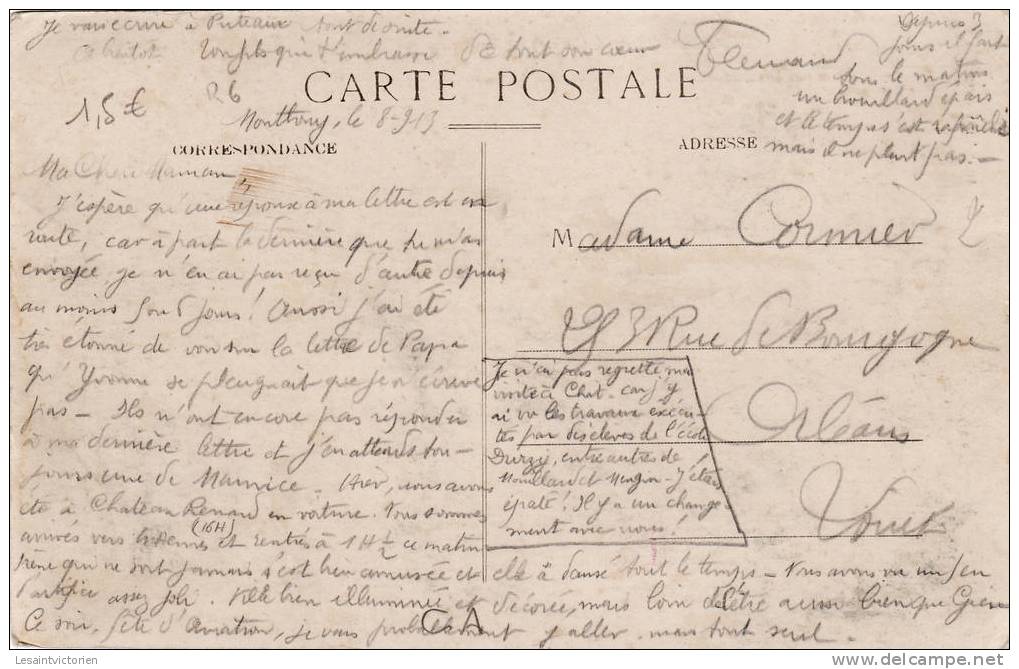 Je vais écrire à Puteaux tout de suite.
A bientôt ton fils qui t'embrasse de tout son coeur
Fernand
Depuis 3
jours il fait
tous le matins
un brouillard épais
et le temps s'est rafraîchi
mais il ne pleut pas.—
1,5€
26
CARTE POSTALE
Monthony, le 8-9 13
CORRESPONDANCE
ADRESSE
Ma Chère Maman,
J'espère qu'une réponse à ma lettre est en
route, car à part la dernière que tu m'as
envoyée je n'en ai pas reçu d'autre depuis
au moins 5 ou 6 jours! Aussi j'ai été
très étonné de voir sur la lettre de Papa
qu'Yvonne se plaignait que je n'écrive
pas — Ils n'ont encore pas répondu
à ma dernière lettre et j'en attends tou-
jours une de Maurice. Hier, nous avons
été à Chateau Renard en voiture. Nous sommes
arrivés vers (16H) et rentrés à 1H ½ ce matin
Irène qui ne sort jamais s'est bien amusée et elle a dansé tout le temps — Nous avons vu un feu
d'artifice assez joli. Ville bien illuminée et décorée, mais loin d'être aussi bien que Gien
Ce soir, fête d'Aviation, je vais probablement y aller mais tout seul.
Madame Cormier
3 Rue de Bourgogne
Orléans
Loiret
Je n'ai pas regretté ma
visite à Chat. car j'y
ai vu les travaux exécu-
tés par des élèves de l'école
Durzy, entre autres de
Nouillard et — J'étais
épaté! Il y a un change-
ment avec nous!
CA
Lesaintvictorien
delcampe.net